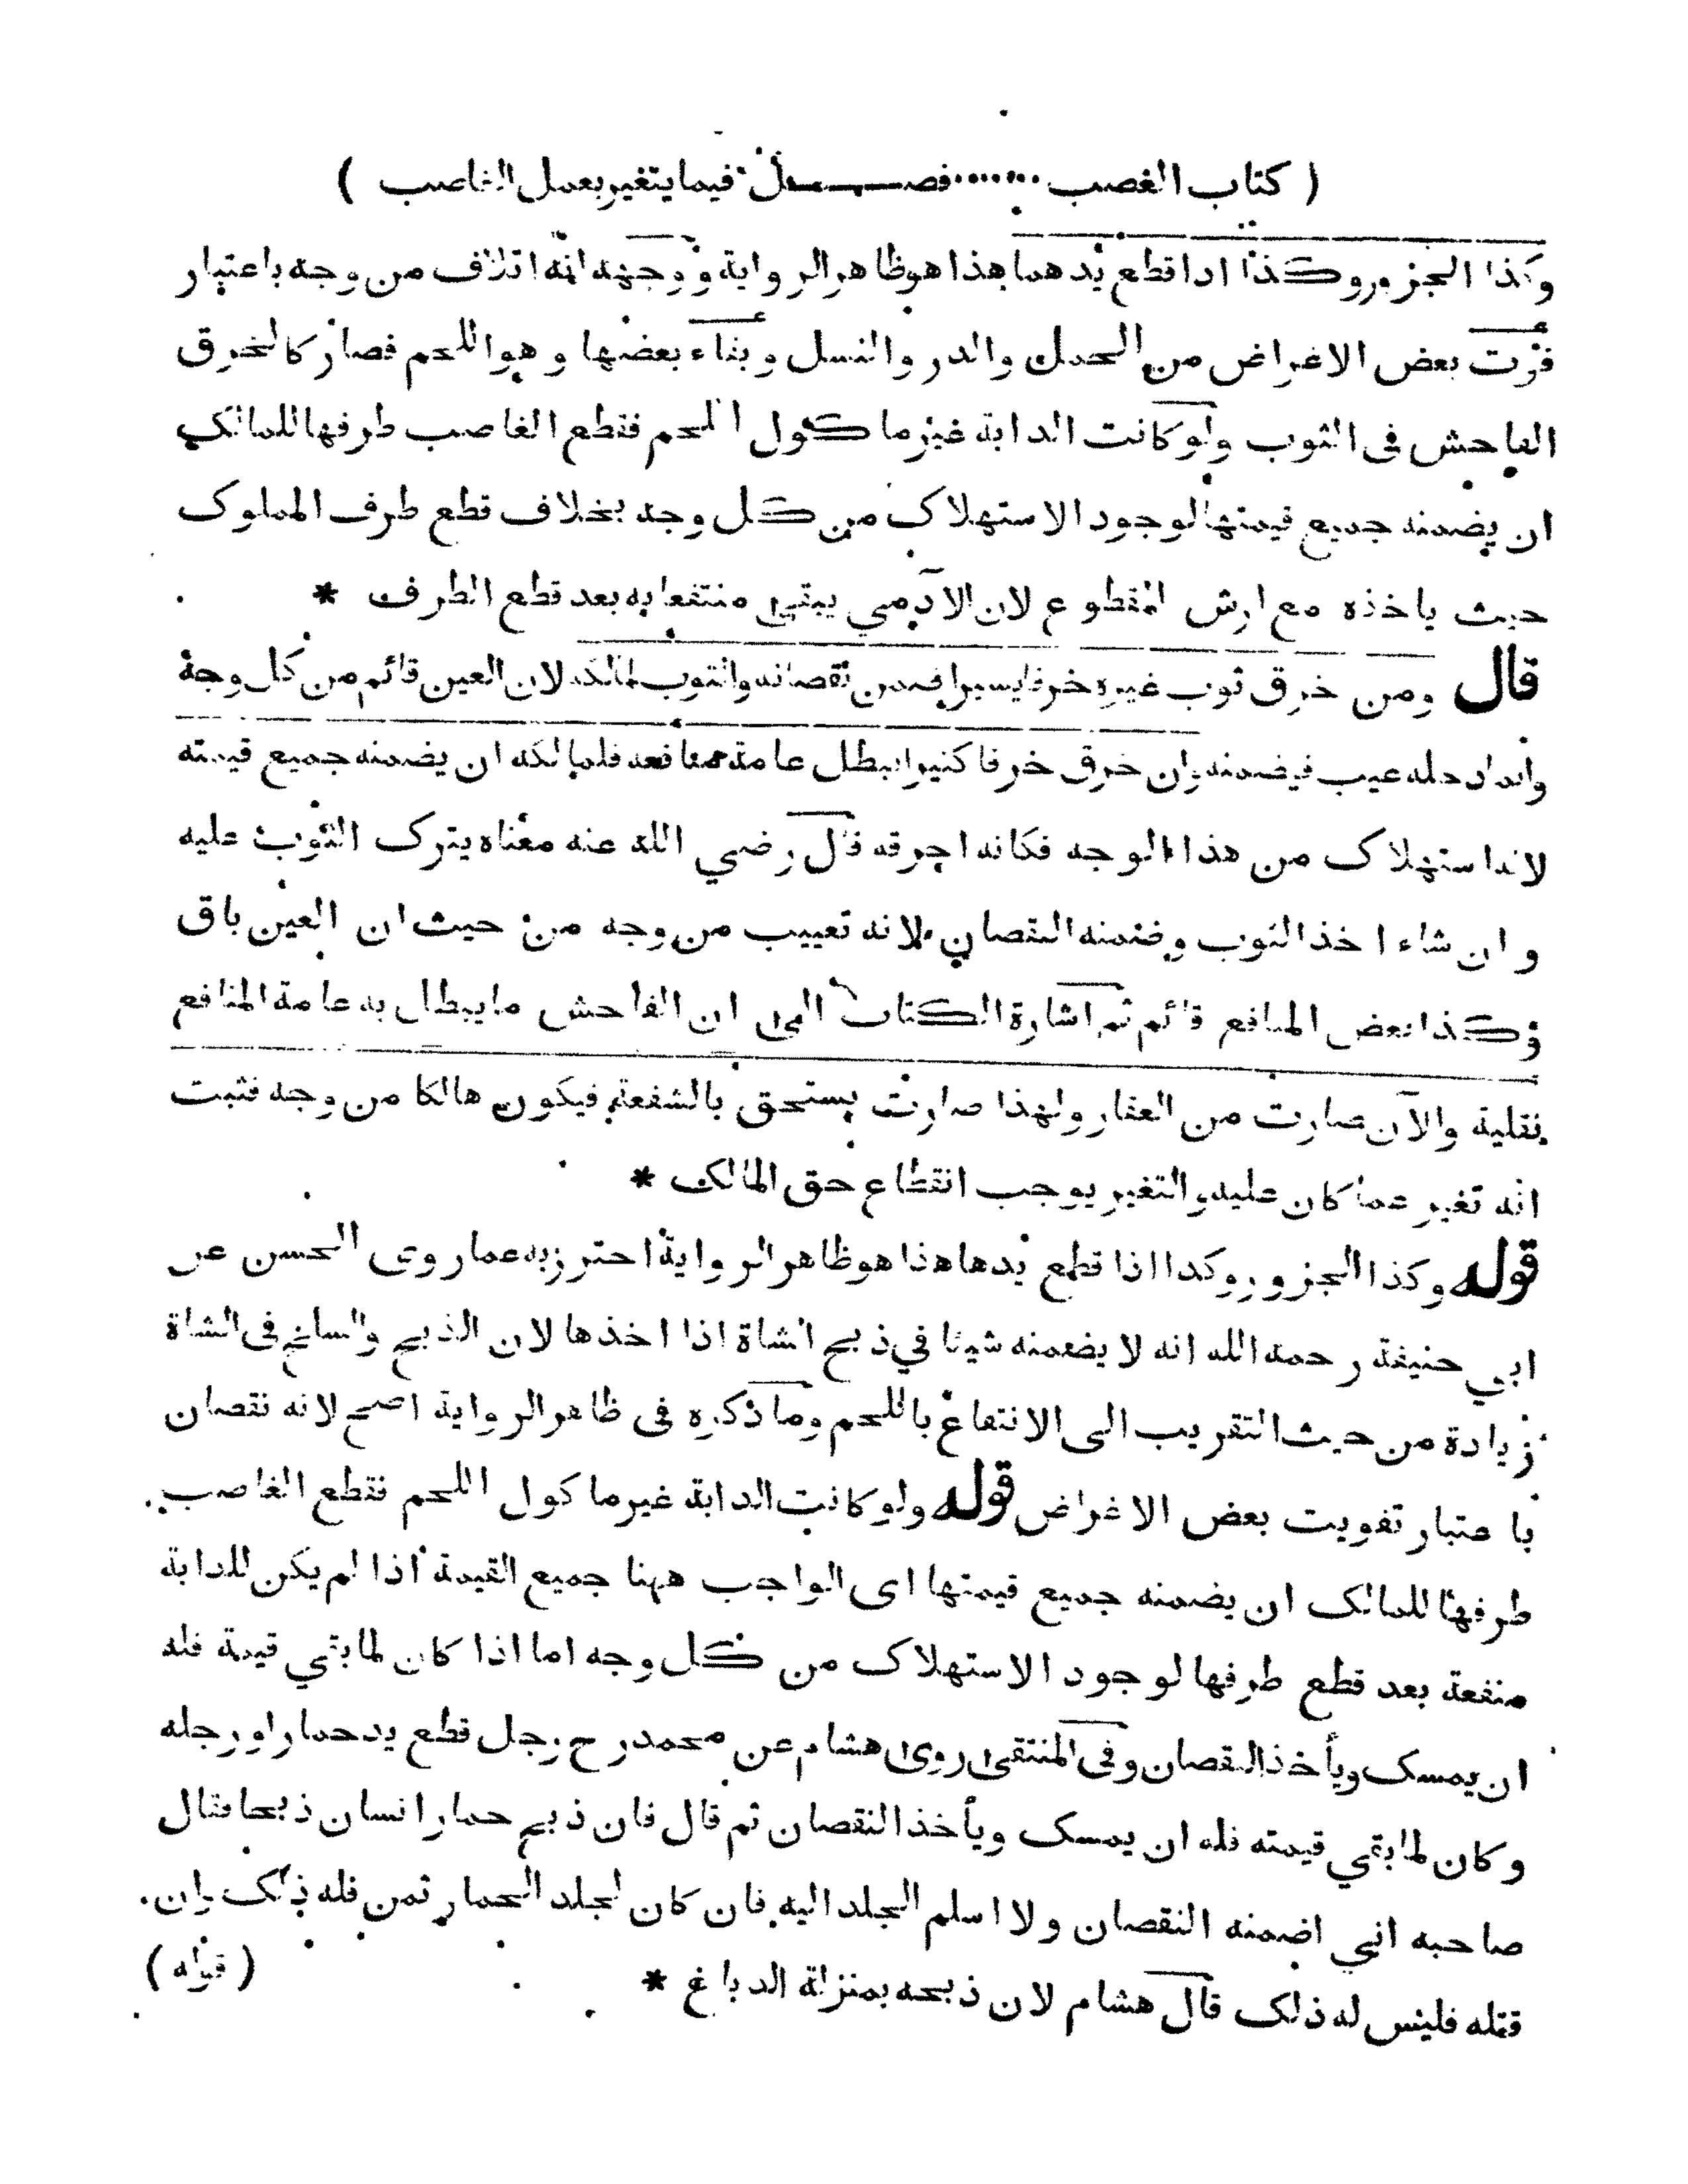 ( كتاب الغصب ....... فصـــــل فيما يتغير بعمل الغاصب )
وكذا الجزور وكذا اذا قطع يدهما هذا هو ظاهر الرواية ووجهه انه اتلاف من وجه باعتبار
فوت بعض الاغراض من الحمل والدر والنسل وبقاء بعضها وهو اللحم فصار كالخرق
الفاحش فى الثوب ولو كانت الدابة غير ما كول اللحم فقطع الغاصب طرفها للمالك
ان يضمنه جميع قيمتها لوجود الاستهلاك من كل وجه بخلاف قطع طرف المملوك
حيث ياخذه مع ارش المقطوع لان الآدمي يبقى منتفعا به بعد قطع الطرف *
قال ومن خرق ثوب غيره خرقا يسيرا ضمن نقصانه والثوب لمالكه لان العين قائم من كل وجه
وانما دخله عيب فيضمنه وان خرق خرقا كثيرا يبطل عامة منافعه فلمالكه ان يضمنه جميع قيمته
لانه استهلاك من هذا الوجه فكانه احرقه قال رضي الله عنه معناه يترك الثوب عليه
وان شاء اخذ الثوب وضمنه النقصان لانه تعييب من وجه من حيث ان العين باق
وكذا بعض المنافع قائم ثم اشارة الكتاب الى ان الفاحش ما يبطل به عامة المنافع
نقلية والآن صارت من العقار ولهذا صارت يستحق بالشفعة فيكون هالكا من وجه فثبت
انه تغير عما كان عليه والتغير يوجب انقطاع حق المالك *
قوله وكذا الجزور وكذا اذا قطع يدها هذا هو ظاهر الرواية احترز به عما روى الحسن عن
ابي حنيفة رحمه الله انه لا يضمنه شيئا في ذبح الشاة اذا اخذها لان الذبح والسلخ فى الشاة
زيادة من حيث التقريب الى الانتفاع باللحم وما ذكره فى ظاهر الرواية اصح لانه نقصان
با عتبار تفويت بعض الاغراض قوله ولو كانت الدابة غير ما كول اللحم فقطع الغاصب
طرفها للمالك ان يضمنه جميع قيمتها اى الواجب ههنا جميع القيمة اذا لم يكن للدابة
منفعة بعد قطع طرفها لوجود الاستهلاك من كل وجه اما اذا كان لما بقي قيمة فله
ان يمسك ويأخذ النقصان وفى المنتقى روى هشام عن محمد رح رجل قطع يد حمار او رجله
وكان لما بقي قيمته فله ان يمسك ويأخذ النقصان ثم قال فان ذبح حمار انسان ذبحا فقال
صاحبه اني اضمنه النقصان ولا اسلم الجلد اليه فان كان لجلد الحمار ثمن فله ذلك وان
قتله فليس له ذلك قال هشام لان ذبحه بمنزلة الدباغ *
( قوله )